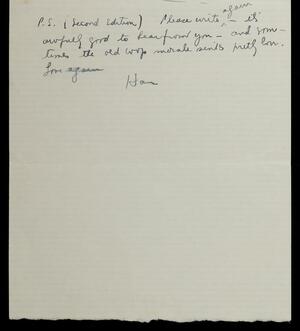 again
P.S. (Second Edition) Please write, – it's
awfully good to hear from you – and some-
times the old morale sinks pretty low.
Love again